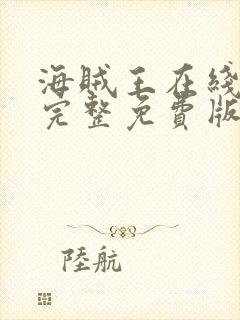 海賊王在綫
完整免費版
陸航